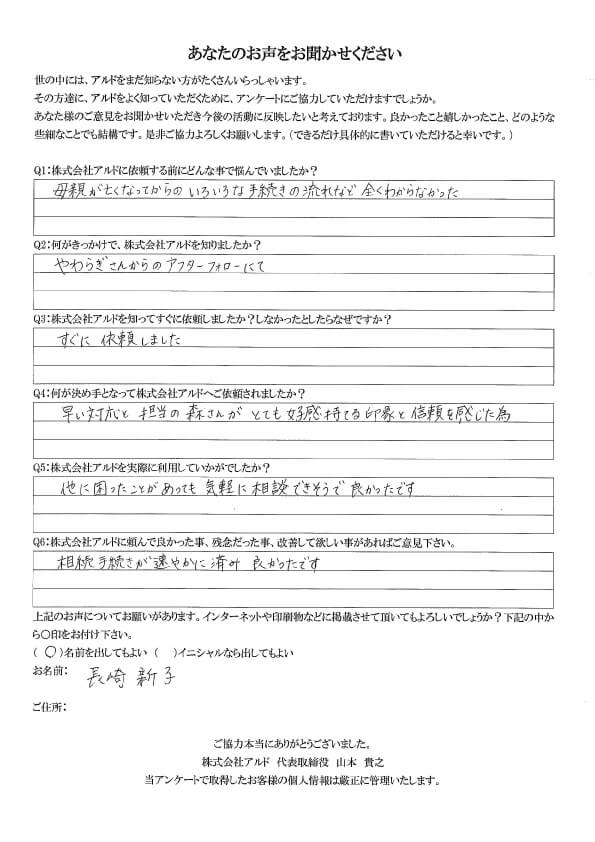 あなたのお声をお聞かせください
世の中には、アルドをまだ知らない方がたくさんいらっしゃいます。
その方達に、アルドをよく知っていただくために、アンケートにご協力していただけますでしょうか。
あなた様のご意見をお聞かせいただき今後の活動に反映したいと考えております。良かったこと嬉しかったこと、どのような
些細なことでも結構です。是非ご協力よろしくお願いします。（できるだけ具体的に書いていただけると幸いです。）
Q1：株式会社アルドに依頼する前にどんな事で悩んでいましたか？
母親が亡くなってからの いろいろな手続きの流れなど 全くわからなかった
Q2：何がきっかけで、株式会社アルドを知りましたか？
やわらぎさんからのアフターフォローにて
Q3：株式会社アルドを知ってすぐに依頼しましたか？しなかったとしたらなぜですか？
すぐに 依頼しました
Q4：何が決め手となって株式会社アルドへご依頼されましたか？
早い対応と 担当の森さんが とても好感持てる印象と信頼を感じた為
Q5：株式会社アルドを実際に利用していかがでしたか？
他に困ったことがあっても 気軽に相談できそうで 良かったです
Q6：株式会社アルドに頼んで良かった事、残念だった事、改善して欲しい事があればご意見下さい。
相続手続きが速やかに済み 良かったです
上記のお声についてお願いがあります。インターネットや印刷物などに掲載させて頂いてもよろしいでしょうか？下記の中か
ら〇印をお付け下さい。
（ 〇 ）名前を出してもよい （ ）イニシャルなら出してもよい
お名前： 長崎 新子
ご住所：
ご協力本当にありがとうございました。
株式会社アルド 代表取締役 山本 貴之
当アンケートで取得したお客様の個人情報は厳正に管理いたします。